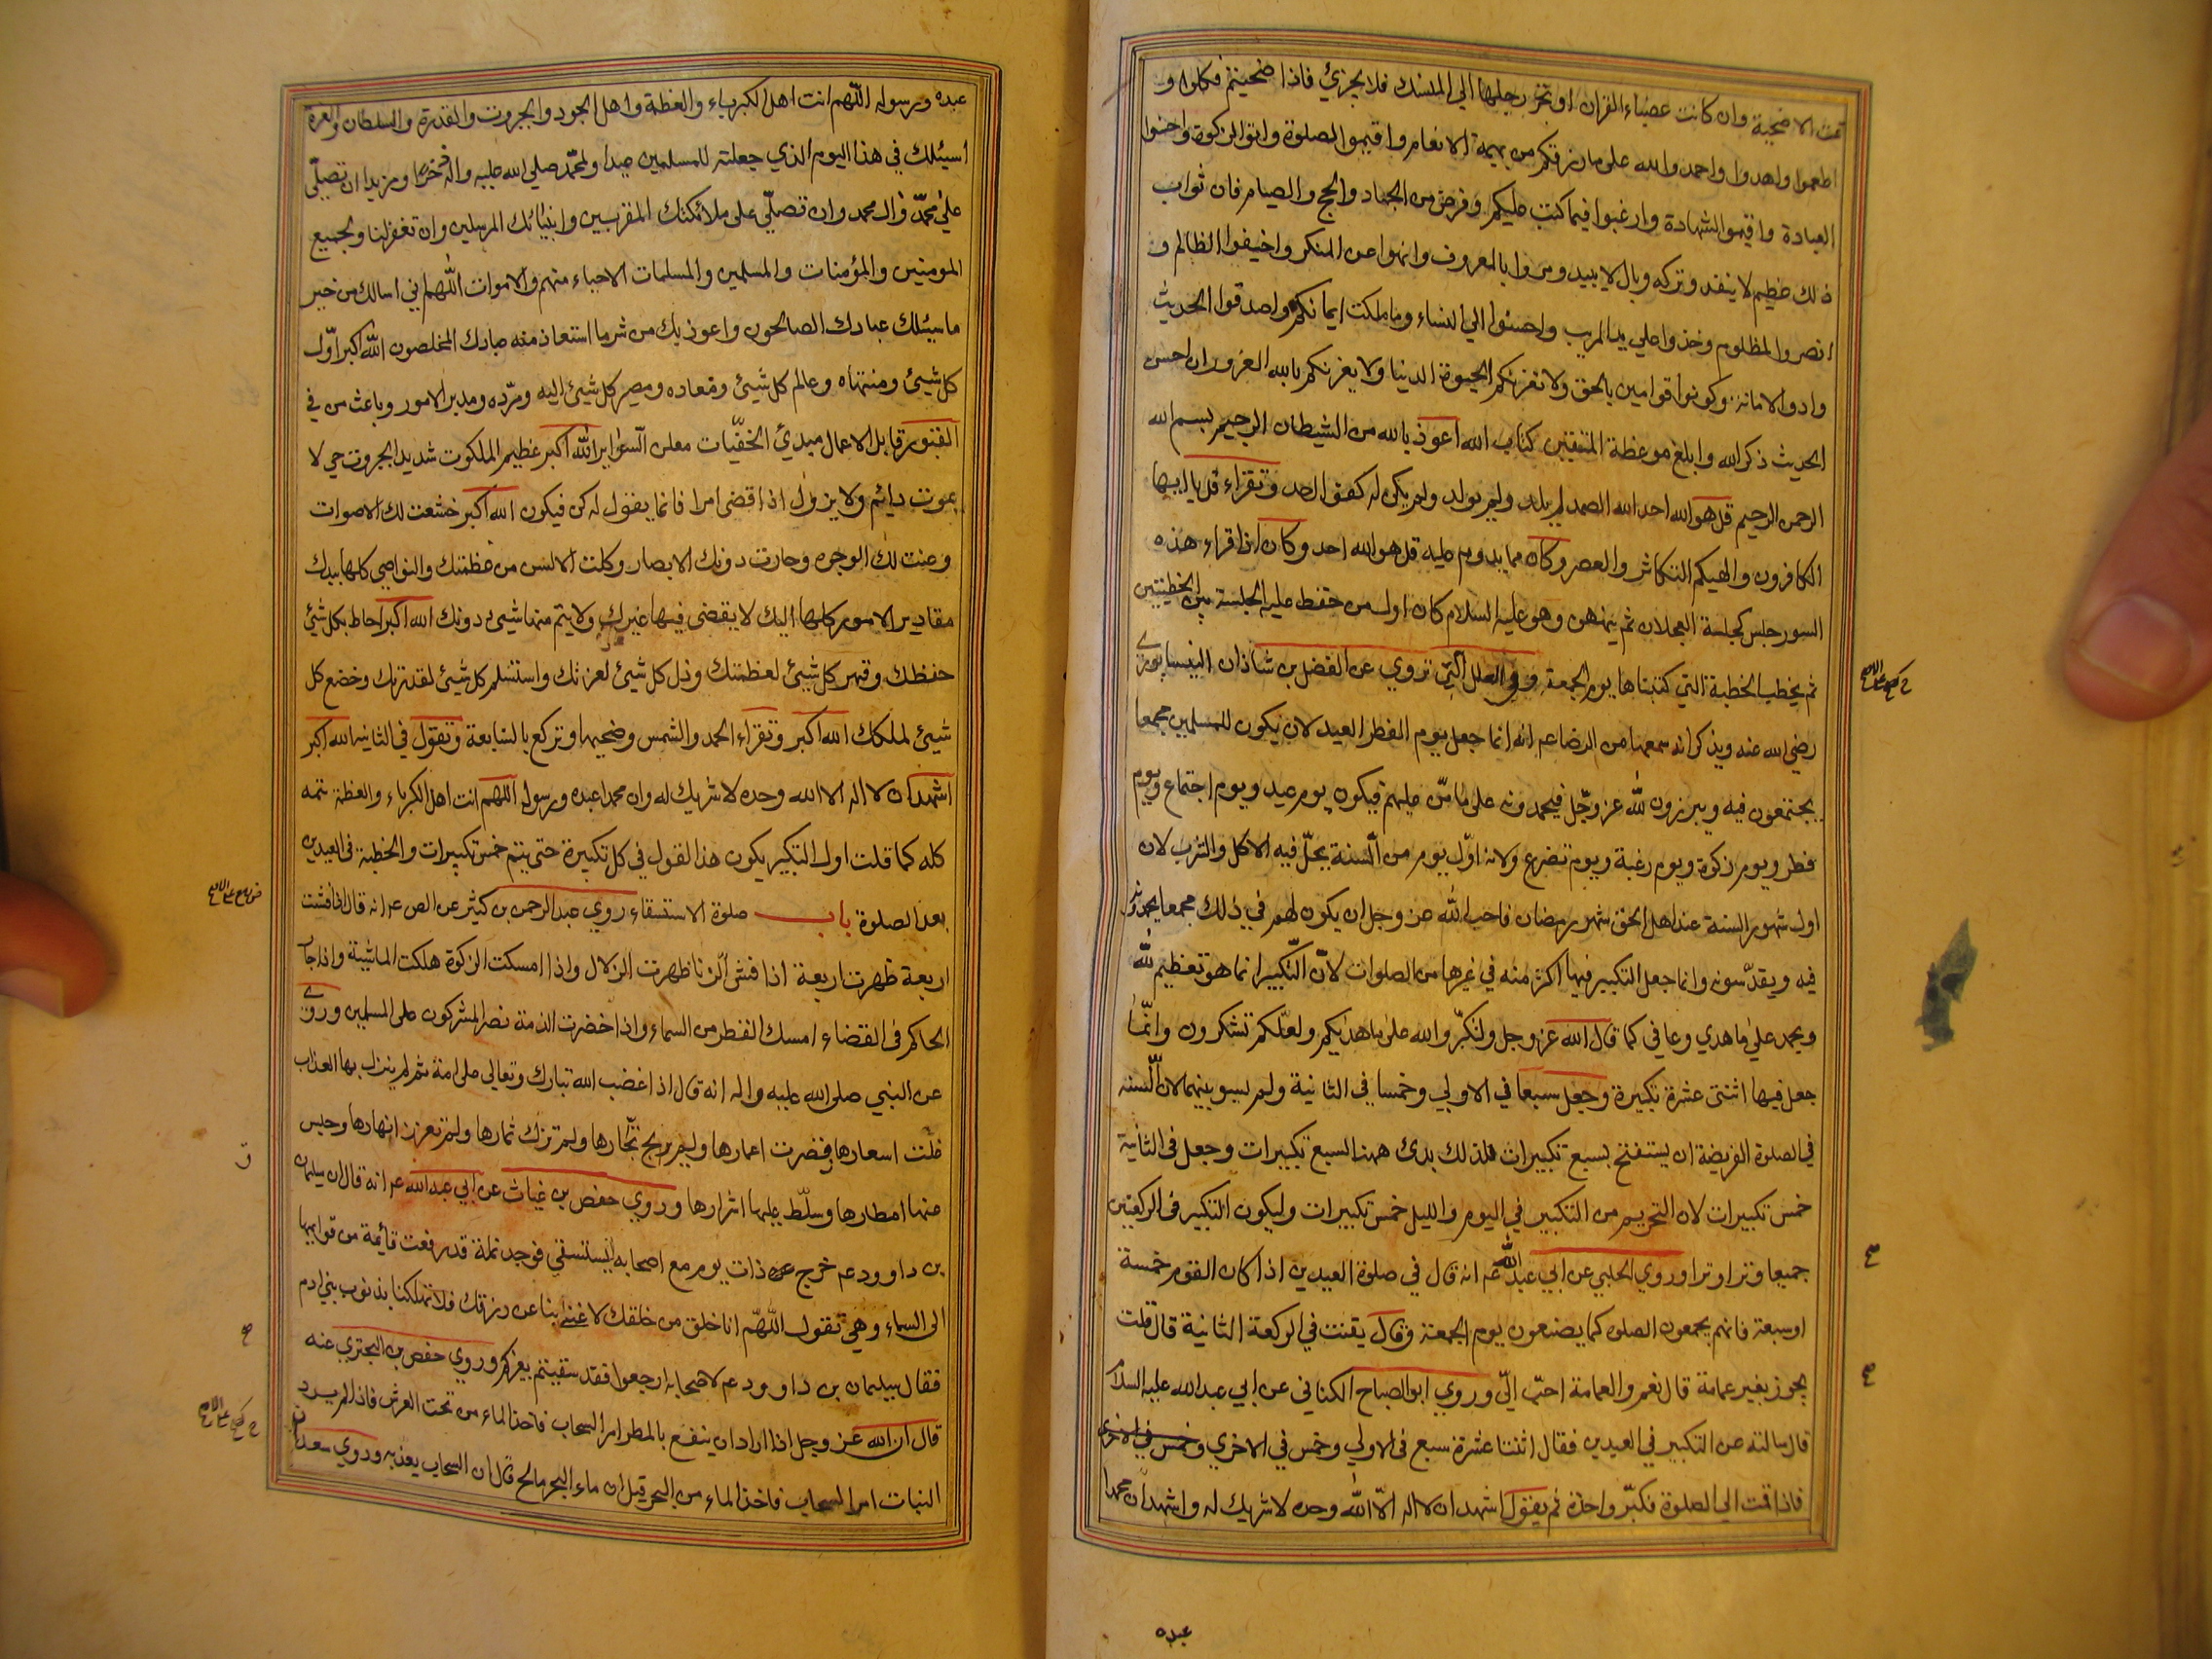 تمت الاضحية وان كانت عضباء القرن او تجر برجلها الي المنسك فلا يجزي فاذا ضحيتم فكلوا و
اطعموا واهدوا واحمدوا لله على ما رزقكم من بهيمة الانعام واقيموا الصلوة واتوا الزكوة واحسنوا
العبادة واقيموا الشهادة وارغبوا فيما كتب عليكم وفرض من الجهاد والحج والصيام فان ثواب
ذلك عظيم لا ينفد وتركه وبال لا يبيد ومروا بالمعروف وانهوا عن المنكر واخيفوا الظالم و
انصروا المظلوم وخذوا على يد المريب واحسنوا الي النساء وما ملكت ايمانكم واصدقوا الحديث
وادوا الامانة وكونوا قوامين بالحق ولا تغرنكم الحيوة الدنيا ولا يغرنكم بالله الغرور ان احسن
الحديث ذكر الله وابلغ موعظة المتقين كتاب الله اعوذ بالله من الشيطان الرجيم بسم الله
الرحمن الرحيم قل هو الله احد الله الصمد لم يلد ولم يولد ولم يكن له كفوا احد وتقراء قل يا ايها
الكافرون والهيكم التكاثر والعصر وكان مما يدوم عليه قل هو الله احد وكان اذا قراء هذه
السور جلس كجلسة العجلان ثم ينهض وهو عليه السلام كان اول من حفظ عليه الجلسة بين الخطبتين
ثم يخطب الخطبة التي كتبناها يوم الجمعة وفي العلل التي تروي عن الفضل بن شاذان النيسابوري
رضي الله عنه ويذكر انه سمعها من الرضا عم انه انما جعل يوم الفطر العيد لان يكون للمسلمين مجمعا
يجتمعون فيه ويبرزون لله عز وجل فيحمدونه على ما من عليهم فيكون يوم عيد ويوم اجتماع ويوم
فطر ويوم زكوة ويوم رغبة ويوم تضرع ولانه اول يوم من السنة يحل فيه الاكل والشرب لان
اول شهور السنة عند اهل الحق شهر رمضان فاحب الله عز وجل ان يكون لهم في ذلك مجمعا يحمدونه
فيه ويقدسونه وانما جعل التكبير فيها اكثر منه في غيرها من الصلوات لان التكبير انما هو تعظيم لله
ويحمد على ما هدي وعافي كما قال الله عز وجل ولتكبروا الله على ما هديكم ولعلكم تشكرون وانما
جعل فيها اثنتى عشرة تكبيرة وجعل سبعا في الاولي وخمسا في الثانية ولم يسو بينهما لان السنه
في الصلوة الفريضة ان يستفتح بسبع تكبيرات فلذلك بدئ ههنا بسبع تكبيرات وجعل في الثانية
خمس تكبيرات لان التحريم من التكبير في اليوم والليل خمس تكبيرات وليكون التكبير في الركعتين
جميعا وترا وترا وروي الحلبي عن ابي عبد الله عم انه قال في صلوة العيدين اذا كان القوم خمسة
او سبعة فانهم يجمعون الصلوه كما يصنعون يوم الجمعة وقال يقنت في الركعة الثانية قال قلت
يجوز بغير عمامة قال نعم والعمامة احب الي وروي ابو الصباح الكناني عن ابي عبد الله عليه السلام
قال سالته عن التكبير في العيدين فقال اثنتا عشرة سبع في الاولي وخمس في الاخري وخمس في الاخري
فاذا قمت الي الصلوة فكبر واحدة ثم يقول اشهد ان لا اله الا الله وحده لا شريك له واشهد ان محمدا
عبده
عبده ورسوله اللهم انت اهل الكبرياء والعظمة واهل الجود والجبروت والقدرة والسلطان والعزة
اسيئلك في هذا اليوم الذي جعلته للمسلمين عيدا ولمحمد صلي الله عليه واله ذخرا ومزيدا ان تصلي
علي محمد وال محمد وان تصلي على ملائكتك المقربين وانبيائك المرسلين وان تغفر لنا ولجميع
المومنين والمؤمنات والمسلمين والمسلمات الاحياء منهم والاموات اللهم اني اسالك من خير
ما سيئلك عبادك الصالحون واعوذ بك من شر ما استعاذ منه عبادك المخلصون الله اكبر اول
كل شيئ ومنتهاه وعالم كل شيئ ومعاده ومصير كل شيئ اليه ومرده ومدبر الامور وباعث من في
القبور قابل الاعمال مبدئ الخفيات معلن السراير الله اكبر عظيم الملكوت شديد الجبروت حي لا
يموت دايم ولا يزول اذا قضى امرا فانما يقول له كن فيكون الله اكبر خشعت لك الاصوات
وعنت لك الوجوه وحارت دونك الابصار وكلت الالسن من عظمتك والنواصي كلها بيدك
مقادير الامور كلها اليك لا يقضي فيها غيرك ولا يتم منها شيئ دونك الله اكبر احاط بكل شيئ
حفظك وقهر كل شيئ لعظمتك وذل كل شيئ لعزتك واستسلم كل شيئ لقدرتك وخضع كل
شيئ لملكك الله اكبر وتقراء الحمد والشمس وضحيها وتركع بالسابعة وتقول في الثانيه الله اكبر
اشهد ان لا اله الا الله وحده لا شريك له وان محمدا عبده ورسوله اللهم انت اهل الكبرياء والعظمة تتمه
كله كما قلت اول التكبير يكون هذا القول في كل تكبيرة حتى يتم خمس تكبيرات والخطبة في العيدين
بعد الصلوة باب صلوة الاستسقاء روي عبد الرحمن بن كثير عن الص عم انه قال اذا فشت
اربعة ظهرت اربعة اذا فشى الزنا ظهرت الزلازل واذا امسكت الزكوة هلكت الماشية واذا جار
الحاكم في القضاء امسك القطر من السماء واذا خفرت الذمة نصر المشركون على المسلمين وروي
عن النبي صلى الله عليه واله انه قال اذا غضب الله تبارك وتعالى على امة ثم لم ينزل بها العذاب
غلت اسعارها وقصرت اعمارها ولم يربح تجارها ولم تزك ثمارها ولم تغزر انهارها وحبس
عنها امطارها وسلط عليها اشرارها وروي حفص بن غياث عن ابي عبد الله عم انه قال ان سليمان
بن داوود عم خرج ذات يوم مع اصحابه ليستسقي فوجد نملة قد رفعت قائمة من قوايمها
الى السماء وهي تقول اللهم انا خلق من خلقك لا غنى بنا عن رزقك فلا تهلكنا بذنوب بني ادم
فقال سليمان بن داوود عم لاصحابه ارجعوا فقد سقيتم بغيركم وروي حفص بن البختري عنه
قال ان الله عز وجل اذا اراد ان ينفع بالمطر امر السحاب فاخذ الماء من تحت العرش فاذا لم يرد
النبات امر السحاب فاخذ الماء من البحر قيل ان ماء البحر مالح قال ان السحاب يعذبه وروي سعدان